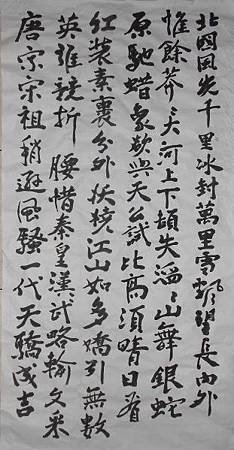 北國風光千里冰封萬里雪飄望長內外
惟餘莽々大河上下頓失滔々山舞銀蛇
原馳蜡象欲與天公試比高須晴日看
紅裝素裹分外妖嬈江山如多嬌引無數
英雄競折腰惜秦皇漢武略輸文采
唐宗宋祖稍遜風騷一代天驕成吉